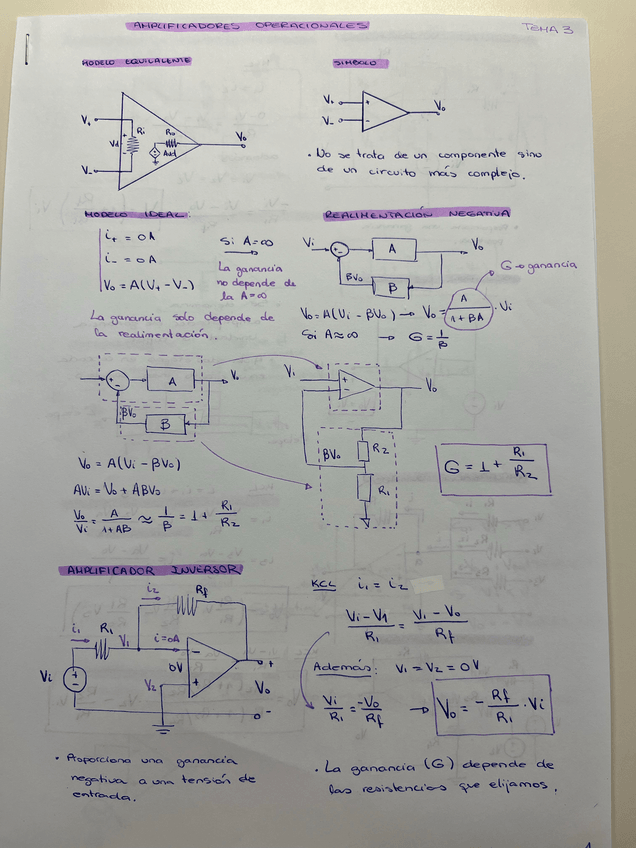 AMPLIFICADORES OPERACIONALES
TEMA 3
MODELO EQUIVALENTE
SIMBOLO
V+
V-
Vd
Ri
Ro
Avd
Vo
V+
V-
+
-
Vo
· No se trata de un componente sino
de un circuito más complejo.
MODELO IDEAL:
i+ = 0A
i- = 0A
Vo = A(V+ - V-)
Si A=∞
La ganancia
no depende de
la A=∞
La ganancia solo depende de
la realimentación.
REALIMENTACIÓN NEGATIVA
Vi
A
Vo
βVo
B
G → ganancia
Vo = A(Vi - βVo) → Vo = A/(1+BA) · Vi
Si A≈∞ → G = 1/B
A
Vo
βVo
B
Vi
+
-
Vo
βVo
R2
R1
Vo = A(Vi - βVo)
AVi = Vo + ABVo
Vo/Vi = A/(1+AB) ≈ 1/B = 1 + R1/R2
G = 1 + R1/R2
AMPLIFICADOR INVERSOR
i2
Rf
i1
R1
V1
i=0A
0V
V2
Vi
-
+
+
Vo
-
KCL i1 = i2
(Vi - V1)/R1 = (V1 - Vo)/Rf
Además: V1 = V2 = 0V
Vi/R1 = -Vo/Rf → Vo = -Rf/R1 · Vi
· Proporciona una ganancia
negativa a una tensión de
entrada.
· La ganancia (G) depende de
las resistencias que elijamos.